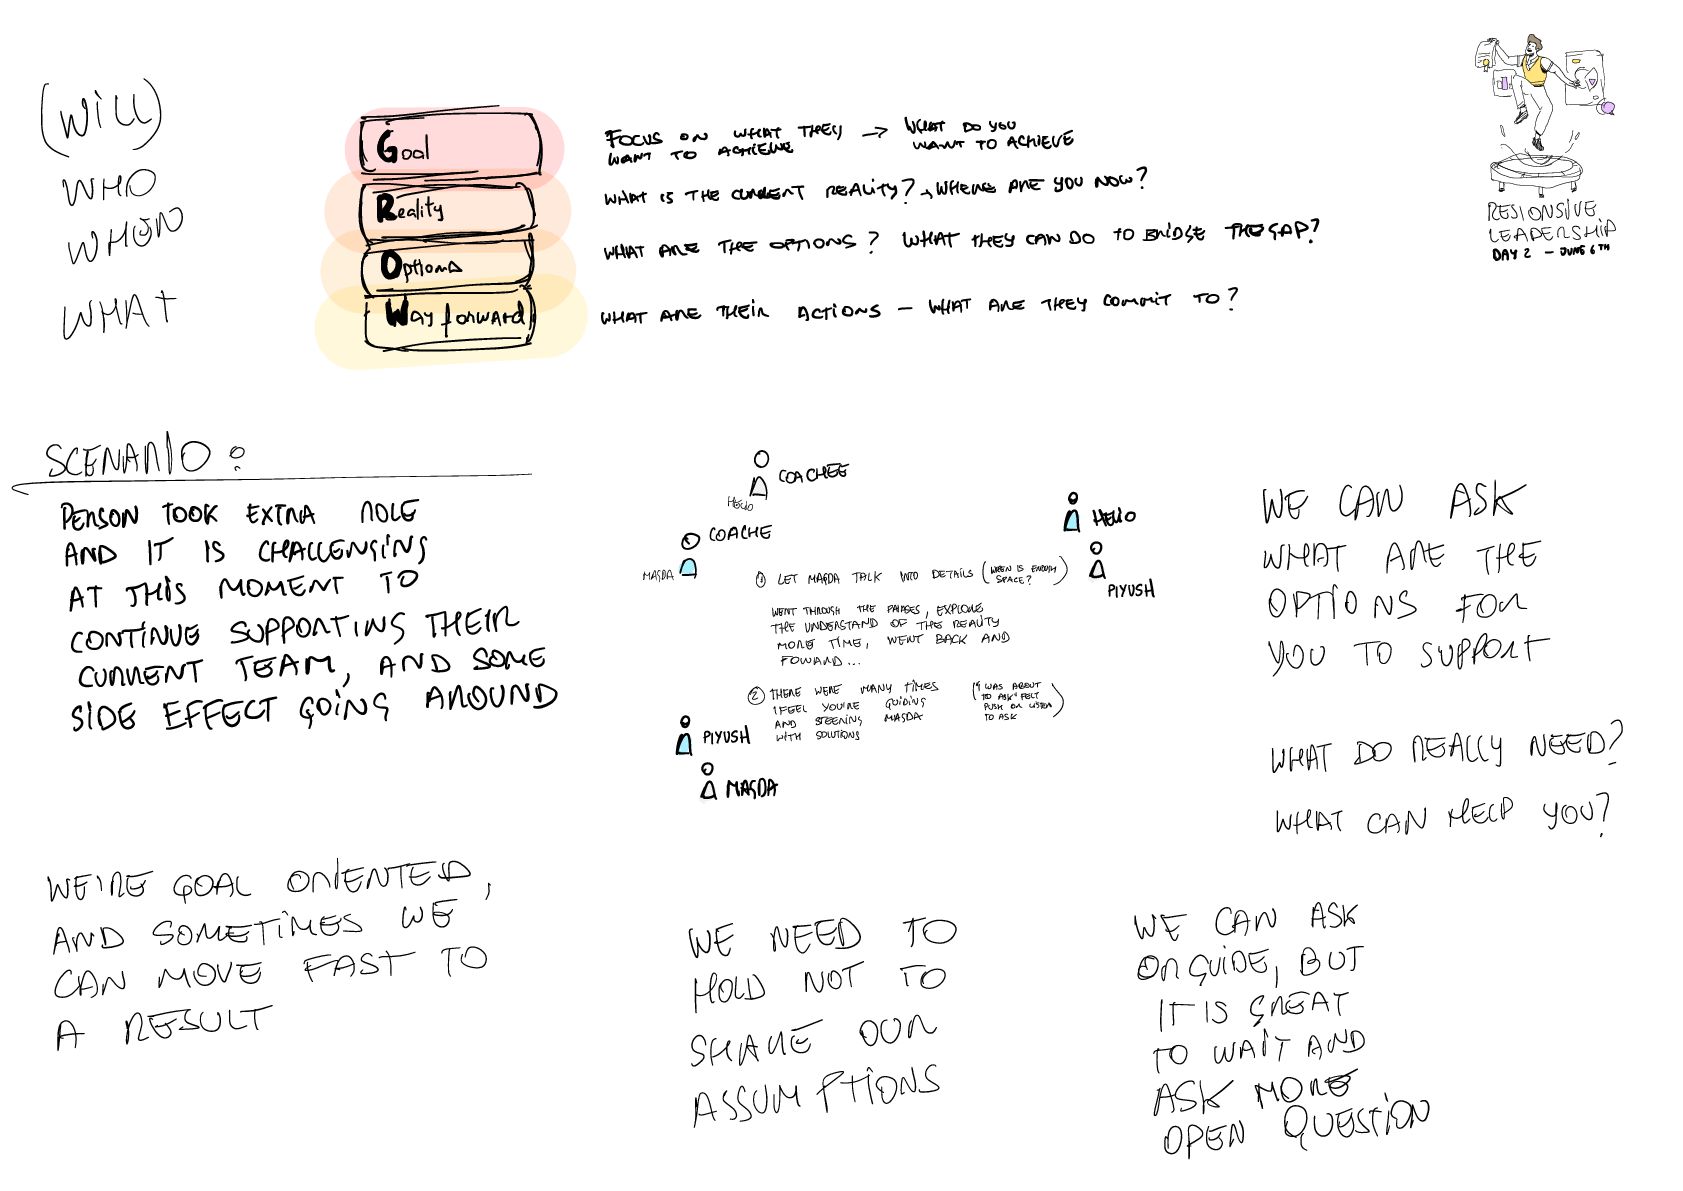 (WILL)
WHO
WHEN
WHAT
Goal
Reality
Options
Way forward
FOCUS ON WHAT THEY
WANT TO ACHIEVE
→ WHAT DO YOU
WANT TO ACHIEVE
WHAT IS THE CURRENT REALITY? → WHERE ARE YOU NOW?
WHAT ARE THE OPTIONS? WHAT THEY CAN DO TO BRIDGE THE GAP?
WHAT ARE THEIR ACTIONS – WHAT ARE THEY COMMIT TO?
RESIONSIVE
LEADERSHIP
DAY 2 – JUNE 6TH
SCENARIO:
PERSON TOOK EXTRA ROLE
AND IT IS CHALLENGING
AT THIS MOMENT TO
CONTINUE SUPPORTING THEIR
CURRENT TEAM, AND SOME
SIDE EFFECT GOING AROUND
COACHEE
HELIO
COACHE
MAGDA
HELIO
PIYUSH
① LET MAGDA TALK INTO DETAILS (WHEN IS ENOUGH
SPACE?)
WENT THROUGH THE PHASES, EXPLORE
THE UNDERSTAND OF THE REALITY
MORE TIME, WENT BACK AND
FOWARD...
② THERE WERE MANY TIMES
I FEEL YOU'RE GUIDING
AND STEERING MAGDA
WITH SOLUTIONS
("I WAS ABOUT
TO ASK" FELT
PUSH OR LISTEN
TO ASK)
PIYUSH
MAGDA
WE CAN ASK
WHAT ARE THE
OPTIONS FOR
YOU TO SUPPORT
WHAT DO REALLY NEED?
WHAT CAN HELP YOU?
WE'RE GOAL ORIENTED,
AND SOMETIMES WE
CAN MOVE FAST TO
A RESULT
WE NEED TO
HOLD NOT TO
SHARE OUR
ASSUMPTIONS
WE CAN ASK
OR GUIDE, BUT
IT IS GREAT
TO WAIT AND
ASK MORE
OPEN QUESTION